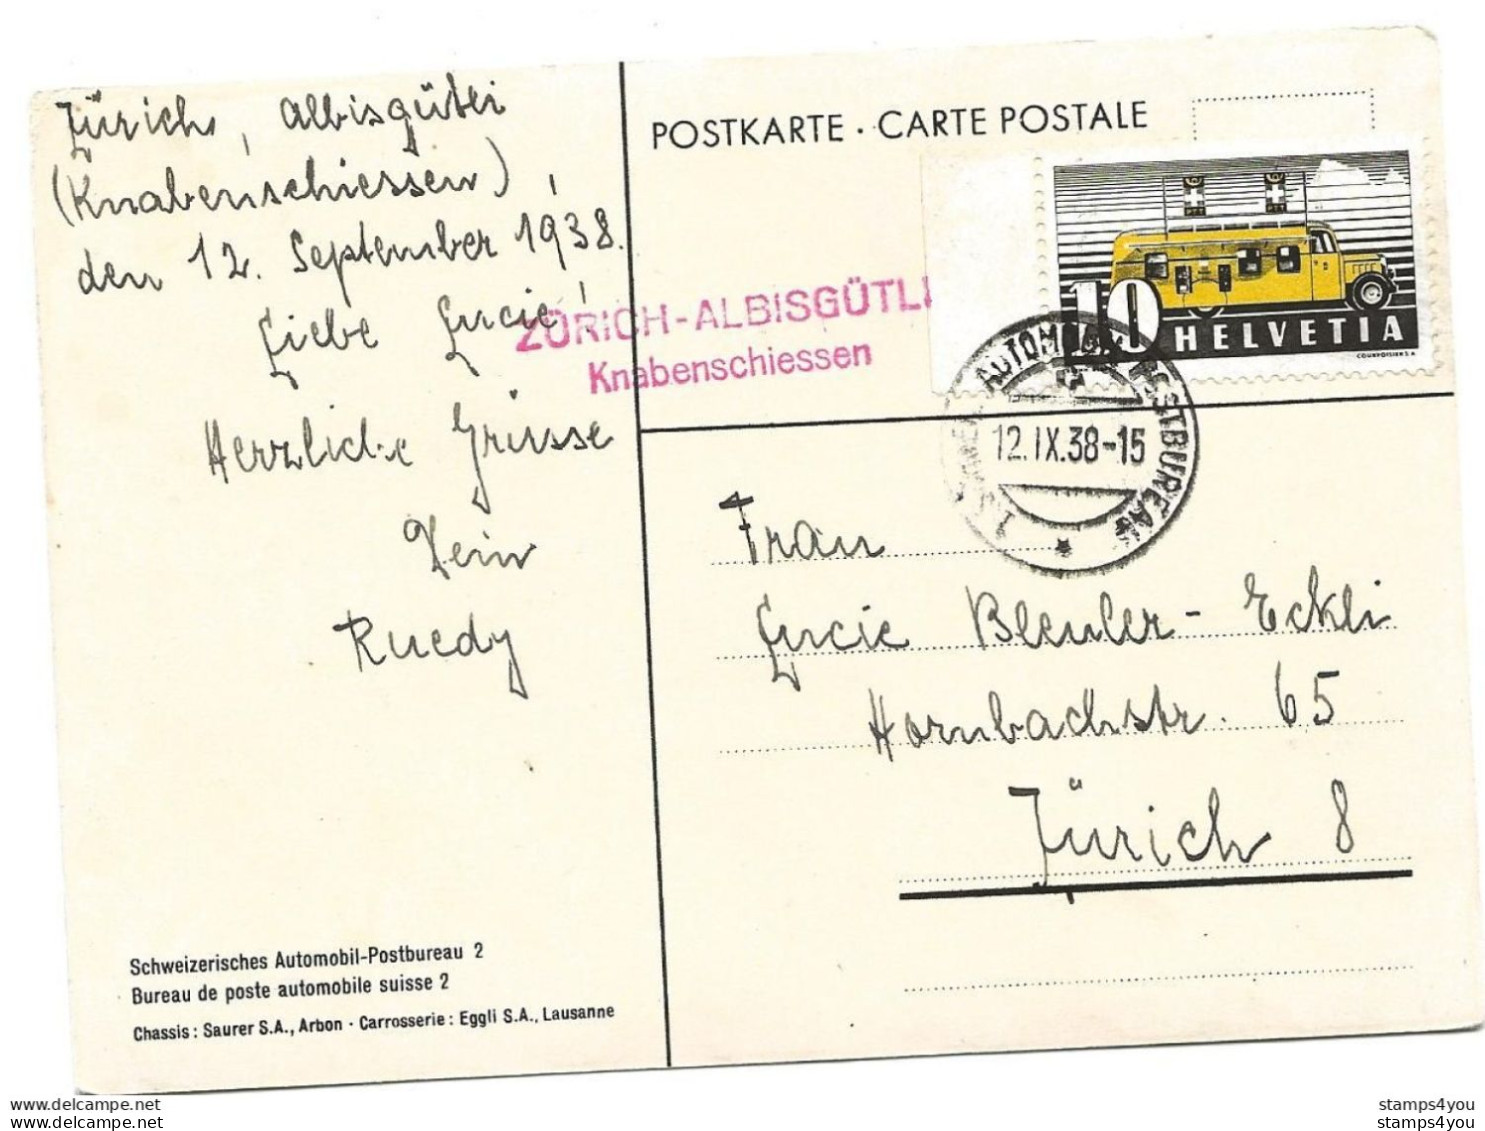 Zürich, Albisgütli
(Knabenschiessen),
den 12. September 1938.
Liebe Lucie!
Herzliche Grüsse
Dein
Ruedy
Schweizerisches Automobil-Postbureau 2
Bureau de poste automobile suisse 2
Chassis: Saurer S.A., Arbon · Carrosserie: Eggli S.A., Lausanne
POSTKARTE · CARTE POSTALE
ZÜRICH-ALBISGÜTLI
Knabenschiessen
PTT PTT
10 HELVETIA
COURVOISIER S.A.
AUTOMOBIL POSTBUREAU
12.IX.38-15
Frau
Lucie Bleuler-Eckli
Hornbachstr. 65
Zürich 8
stamps4you.com.net
stamps4you.com.net
stamps4you
stamps4you